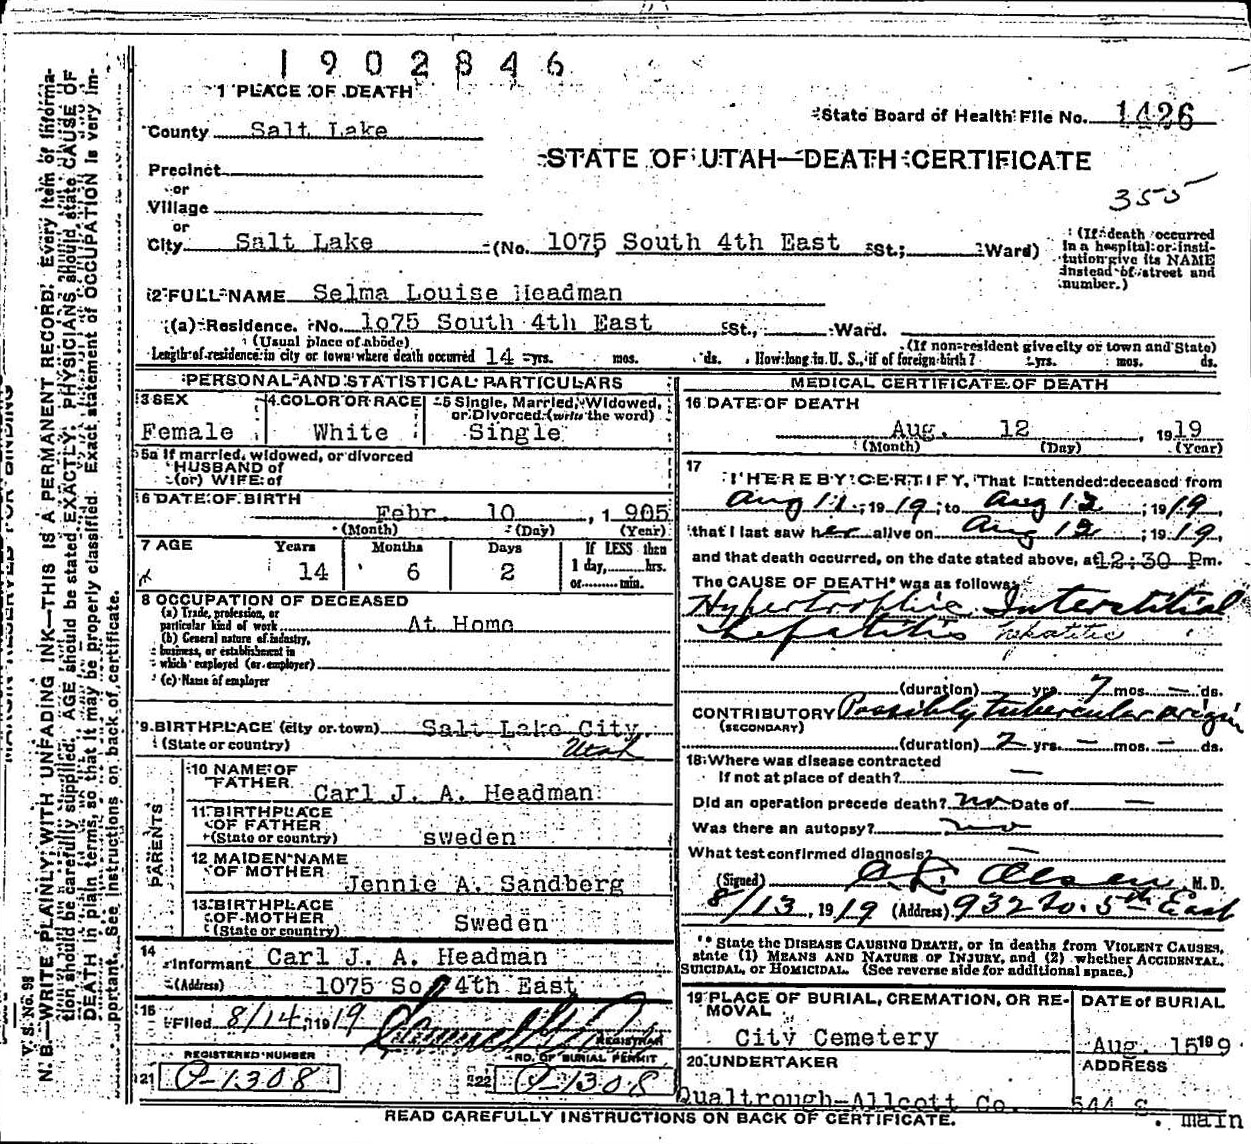 1902846
1 PLACE OF DEATH
State Board of Health File No. 1426
County Salt Lake
STATE OF UTAH—DEATH CERTIFICATE
Precinct
or
355
Village
or
City Salt Lake (No. 1075, South 4th East St.; Ward)
(If death occurred in a hospital or institution give its NAME instead of street and number.)
2 FULL NAME Selma Louise Headman
(a) Residence. No. 1o75 South 4th East St., Ward.
(Usual place of abode) (If non-resident give city or town and State)
Length of residence in city or town where death occurred 14 yrs. mos. ds. How long in U. S., if of foreign birth? yrs. mos. ds.
PERSONAL AND STATISTICAL PARTICULARS
3 SEX 4 COLOR OR RACE 5 Single, Married, Widowed, or Divorced (write the word)
Female White Single
5a If married, widowed, or divorced
HUSBAND of
(or) WIFE of
6 DATE OF BIRTH
Febr. 10, 1905
(Month) (Day) (Year)
7 AGE Years Months Days If LESS than
14 6 2 1 day, hrs.
or min.
8 OCCUPATION OF DECEASED
(a) Trade, profession, or
particular kind of work At Home
(b) General nature of industry,
business, or establishment in
which employed (or employer)
(c) Name of employer
9 BIRTHPLACE (city or town) Salt Lake City.
(State or country) Utah
PARENTS
10 NAME OF
FATHER Carl J. A. Headman
11 BIRTHPLACE
OF FATHER
(State or country) sweden
12 MAIDEN NAME
OF MOTHER
Jennie A. Sandberg
13 BIRTHPLACE
OF MOTHER
(State or country) Sweden
14
Informant Carl J. A. Headman
(Address) 1075 So 4th East
15
Filed 8/14, 1919
REGISTRAR
REGISTERED NUMBER NO. OF BURIAL PERMIT
21 P-1308 22 P-1308
MEDICAL CERTIFICATE OF DEATH
16 DATE OF DEATH
Aug. 12, 1919
(Month) (Day) (Year)
17
I HEREBY CERTIFY, That I attended deceased from
Aug 11, 1919, to Aug 12, 1919,
that I last saw her alive on Aug 12, 1919,
and that death occurred, on the date stated above, at 12:30 Pm.
The CAUSE OF DEATH* was as follows:
Hypertrophic Interstitial
hepatitis hepatitis
(duration) yrs. 7 mos. — ds.
CONTRIBUTORY Possibly tubercular origin
(SECONDARY)
(duration) 2 yrs. — mos. — ds.
18 Where was disease contracted
If not at place of death? —
Did an operation precede death? no Date of —
Was there an autopsy? no
What test confirmed diagnosis? —
(Signed) Olsen, M. D.
8/13, 1919 (Address) 932 So. 5th East
* State the DISEASE CAUSING DEATH, or in deaths from VIOLENT CAUSES,
state (1) MEANS AND NATURE OF INJURY, and (2) whether ACCIDENTAL,
SUICIDAL, or HOMICIDAL. (See reverse side for additional space.)
19 PLACE OF BURIAL, CREMATION, OR RE- DATE of BURIAL
MOVAL
City Cemetery Aug. 15 19 9
20 UNDERTAKER ADDRESS
Qualtrough-Allcott Co. 544 S. main
READ CAREFULLY INSTRUCTIONS ON BACK OF CERTIFICATE.
MARGIN RESERVED FOR BINDING
V. S. No. 98
N. B.—WRITE PLAINLY WITH UNFADING INK—THIS IS A PERMANENT RECORD. Every item of informa-
tion should be carefully supplied. AGE should be stated EXACTLY. PHYSICIANS should state CAUSE OF
DEATH in plain terms, so that it may be properly classified. Exact statement of OCCUPATION is very im-
portant. See instructions on back of certificate.